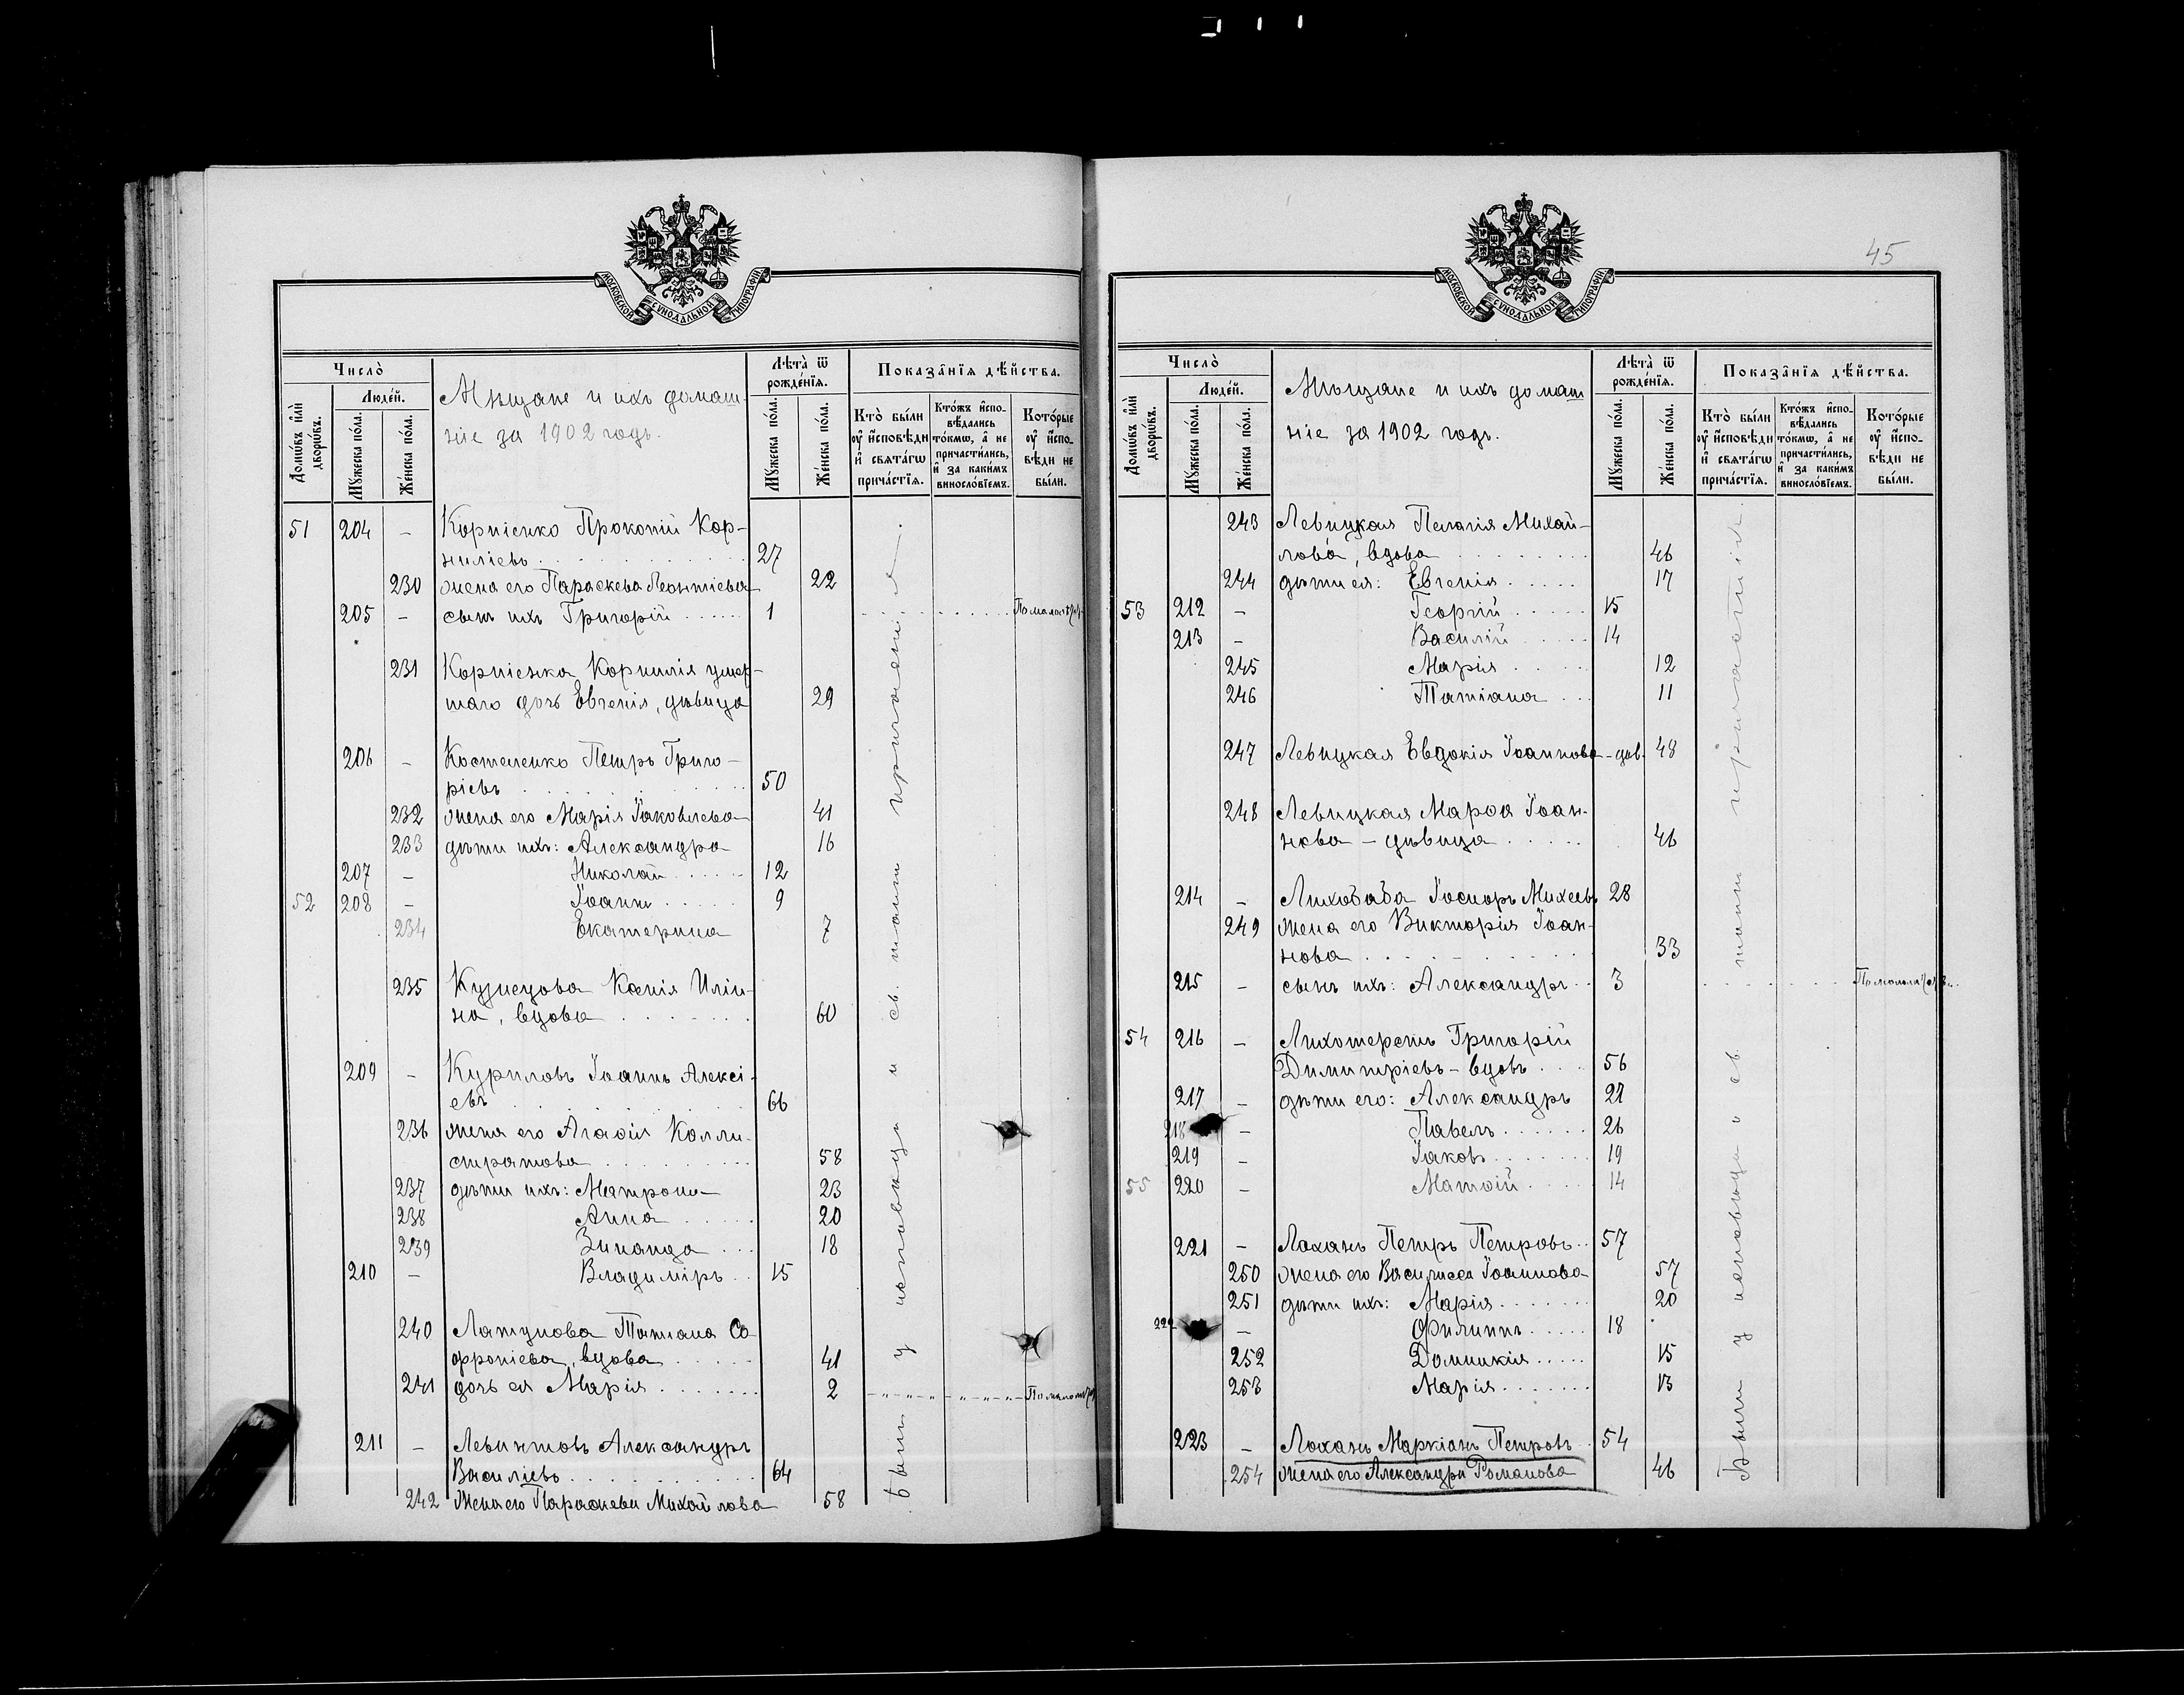 МОСКОВСКОЙ СѴНОДАЛЬНОЙ ТИПОГРАФІИ
Число̀
Домѡ́въ и҆лѝ дворѡ́въ.
Люде́й.
Мꙋ́жеска по́ла.
Же́нска по́ла.
Мѣщане и ихъ домаш-
ніе за 1902 годъ.
Лѣта̀ ѿ рожде́нїѧ.
Мꙋ́жеска по́ла.
Же́нска по́ла.
Показа̑нїѧ дѣ́йства.
Кто̀ бы́ли оу҆ и҆сповѣди и҆ свѧта́гѡ прича́стїѧ.
Кто́жъ и҆спо-вѣдались то́кмѡ, а҆ не причасти́лись, и҆ за каки́мъ винослові́емъ.
Кото́рые оу҆ и҆спо-вѣди не бы́ли.
51 204 – Корніенко Прокопій Кор-
ниліевъ 27
230 жена его Параскева Леонтіева 22
205 – сынъ ихъ Григорій 1
231 Корніенка Корнилія умер-
шаго дочь Евгенія, дѣвица 29
206 – Костенко Петръ Григо-
ріевъ 50
232 жена его Марія Іаковлева 41
233 дѣти ихъ: Александра 16
207 – Николай 12
52 208 – Іоаннъ 9
234 Екатерина 7
235 Кузнецова Ксенія Иліи-
на, вдова 60
209 – Куриловъ Іоаннъ Алексі-
евъ 66
236 жена его Агаѳія Калли-
стратова 58
237 дѣти ихъ: Матрона 23
238 Анна 20
239 Зинаида 18
210 – Владиміръ 15
240 Латунова Татіана Со-
фроніева, вдова 41
241 дочь ея Марія 2
211 – Левинтовъ Александръ
Василіевъ 64
242 Жена его Параскева Михайлова 58
Были у исповѣди и св. таинъ причастія.
45
МОСКОВСКОЙ СѴНОДАЛЬНОЙ ТИПОГРАФІИ
Число̀
Домѡ́въ и҆лѝ дворѡ́въ.
Люде́й.
Мꙋ́жеска по́ла.
Же́нска по́ла.
Мѣщане и ихъ домаш
ніе за 1902 годъ.
Лѣта̀ ѿ рожде́нїѧ.
Мꙋ́жеска по́ла.
Же́нска по́ла.
Показа̑нїѧ дѣ́йства.
Кто̀ бы́ли оу҆ и҆сповѣди и҆ свѧта́гѡ прича́стїѧ.
Кто́жъ и҆спо-вѣдались то́кмѡ, а҆ не причасти́лись, и҆ за каки́мъ винослові́емъ.
Кото́рые оу҆ и҆спо-вѣди не бы́ли.
243 Левицкая Пелагія Михай-
лова, вдова 46
244 дѣти ея: Евгенія 17
53 212 – Георгій 15
213 – Василій 14
245 Марія 12
246 Татіана 11
247 Левицкая Евдокія Іоаннова - дѣв. 48
248 Левицкая Марѳа Іоан-
нова – дѣвица 46
214 – Лихобаба Іосифъ Михеевъ 28
249 жена его Викторія Іоан-
нова 33
215 – сынъ ихъ: Александръ 3
54 216 – Лихошерстъ Григорій
Димитріевъ – вдовъ 56
217 – дѣти его: Александръ 21
218 – Павелъ 26
219 – Іаковъ 19
55 220 – Матѳій 14
221 – Лоханъ Петръ Петровъ 57
250 жена его Василисса Іоаннова 57
251 дѣти ихъ: Марія 20
222 – Филиппъ 18
252 Домникія 15
253 Марія 13
223 – Лоханъ Маркіанъ Петровъ 54
254 жена его Александра Романова 46
Были у исповѣди и св. таинъ причастія.